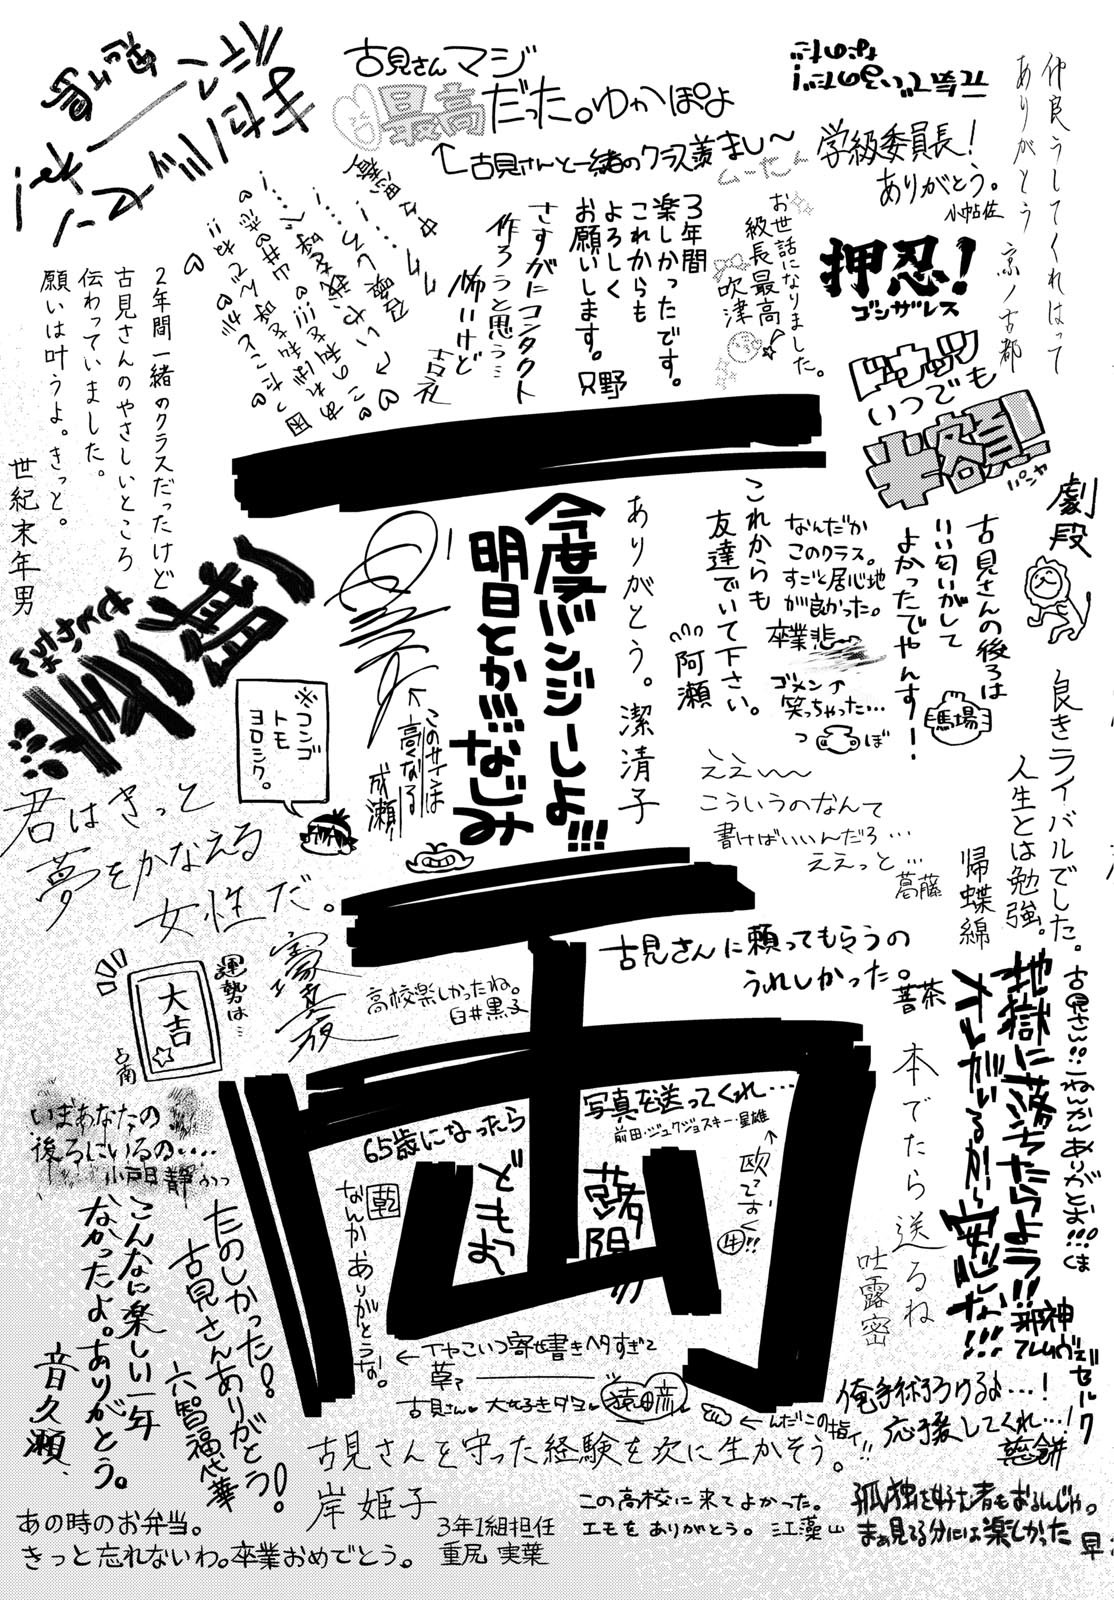 古見さんマジ
最高だった。ゆかぽよ
←古見さんと一緒のクラス羨まし〜
学級委員長!
ありがとう。
小帖佐
仲良うしてくれはって
ありがとう
京ノ古都
またバッセン
行こーね!
押忍!
ゴンザレス
お世話になりました。
級長最高
吹津
3年間
楽しかったです。
これからも
よろしく
お願いします。只野
さすがにコンタクト
作ろうと思う…
怖いけど
古礼
ドーナッツ
いつでも
半額!!
2年間一緒のクラスだったけど
古見さんのやさしいところ
伝わっていました。
願いは叶うよ。きっと。
世紀末年男
劇段
古見さんの後ろは
いい匂いがして
よかったでやんすー!
馬場
なんだか
このクラス。
すごく居心地
が良かった。
卒業悲
ゴメン↑
笑っちゃった…
つぼ
これからも
友達でいて下さい。
阿瀬
ありがとう。潔清子
今度バンジーしよ!!!
明日とか!!!なじみ
←このサインは
高くなる
成瀬
一期一会
やまとさんより
※コンゴ
トモ
ヨロシク。
君はきっと
夢をかなえる
女性だ。
ええ〜〜
こういうのなんて
書けばいいんだろ…
ええっと…
葛藤
良きライバルでした。
人生とは勉強。
帰蝶綿
古見さんに頼ってもらうの
うれしかった。
普茶
高校楽しかったね。
白井黒子
運勢は…
大吉
占南
古見さん!!一ねんかんありがとお!!!くま
地獄に落ちたらよぉ!!
オレがいるから安心しな!!!
邪神
本でたら送るね
吐露密
いまあなたの
後ろにいるの....
小戸目静
65歳になったら
どもお
写真を送ってくれ…
前田・ジュクジョスキー・星雄
乾
なんか、ありがとうな。
たのしかった!
古見さんありがとう!
六智福代華
こんなに楽しい一年
なかったよ。ありがとう。
音久瀬
←イヤこいつ寄せ書きヘタすぎて
草
古見さん大好きダヨ
猿田彦
←んだこの指ィ!!
俺手術うけるよ…!
応援してくれ…!
古見さんを守った経験を次に生かそう。
岸姫子
あの時のお弁当。
きっと忘れないわ。卒業おめでとう。
3年1組担任
重尻 実葉
この高校に来てよかった。
エモをありがとう。江藻山
孤独を好む者もおるんじゃ。
まぁ見てる分には楽しかった